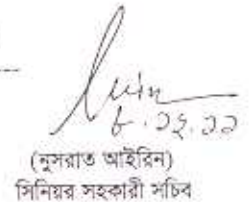 ৮.১২.১১
(নুসরাত আইরিন)
সিনিয়র সহকারী সচিব